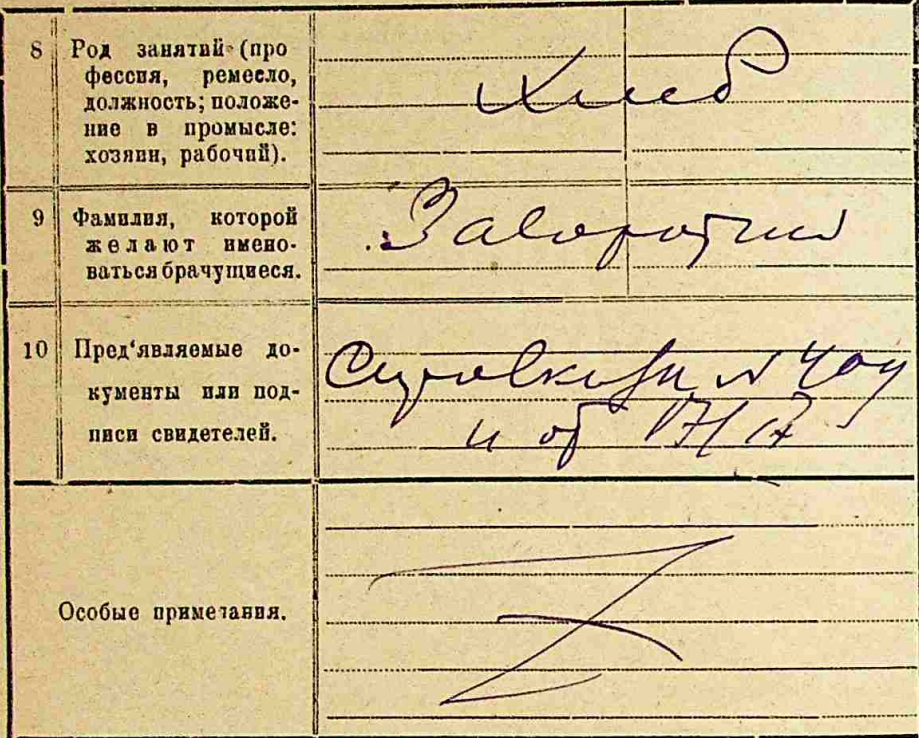 8 Род занятий (про
фессия, ремесло,
должность; положе-
ние в промысле:
хозяин, рабочий).
Хлеб
9 Фамилия, которой
желают имено-
ваться брачущиеся.
10 Пред‘являемые до-
кументы или под-
писи свидетелей.
Особые примечания.